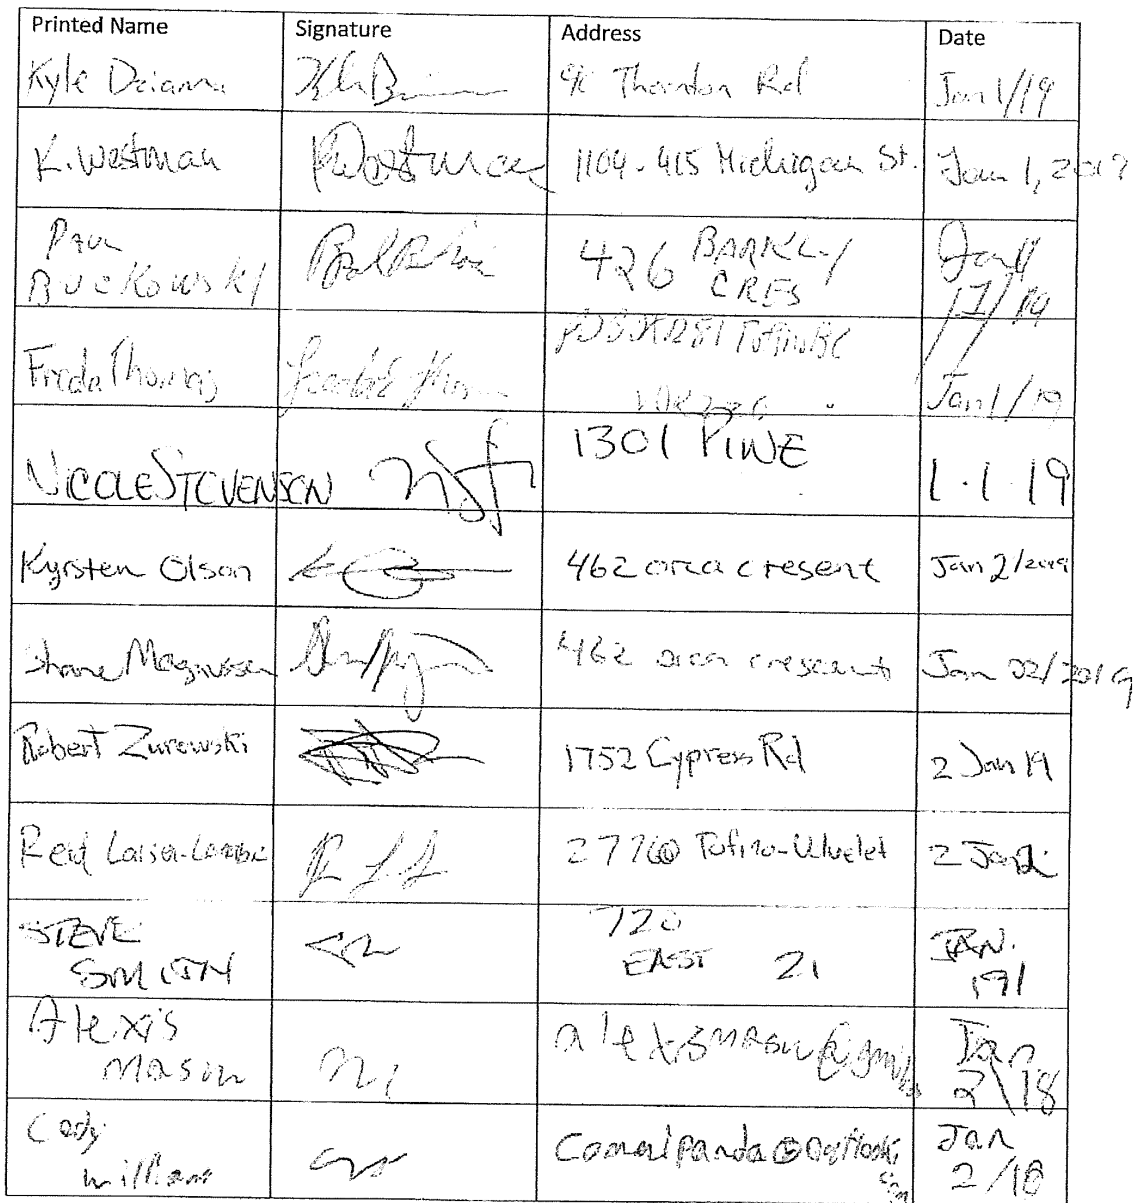 Printed Name Signature Address Date
Kyle Thornton Rd Jan 1/19
K. Westman KWestman 1104-415 Michigan St. Jan 1, 2019
Paul
Buckowski
426 BARKLY
CRES
Jan
1/19
Freda Thomas PO BOX 1281 Tofino BC
Jan 1/19
NICOLE STEVENSON 1301 PINE 1.1.19
Kyrsten Olson 462 orca cresent Jan 2/2019
Shane Magnussen 462 orca crescent Jan 02/2019
Robert Zurowski 1752 Cypress Rd 2 Jan 19
Reid 2776 Tofino-Ucluelet 2 Jan
STEVE
SMITH
720
EAST 21
JAN.
Alexis
Mason
Jan
2\18
Cody
William
Jan
2/18